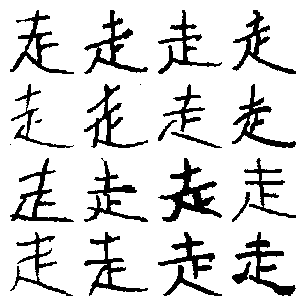 走走走走
走走走走
走走走走
走走走走